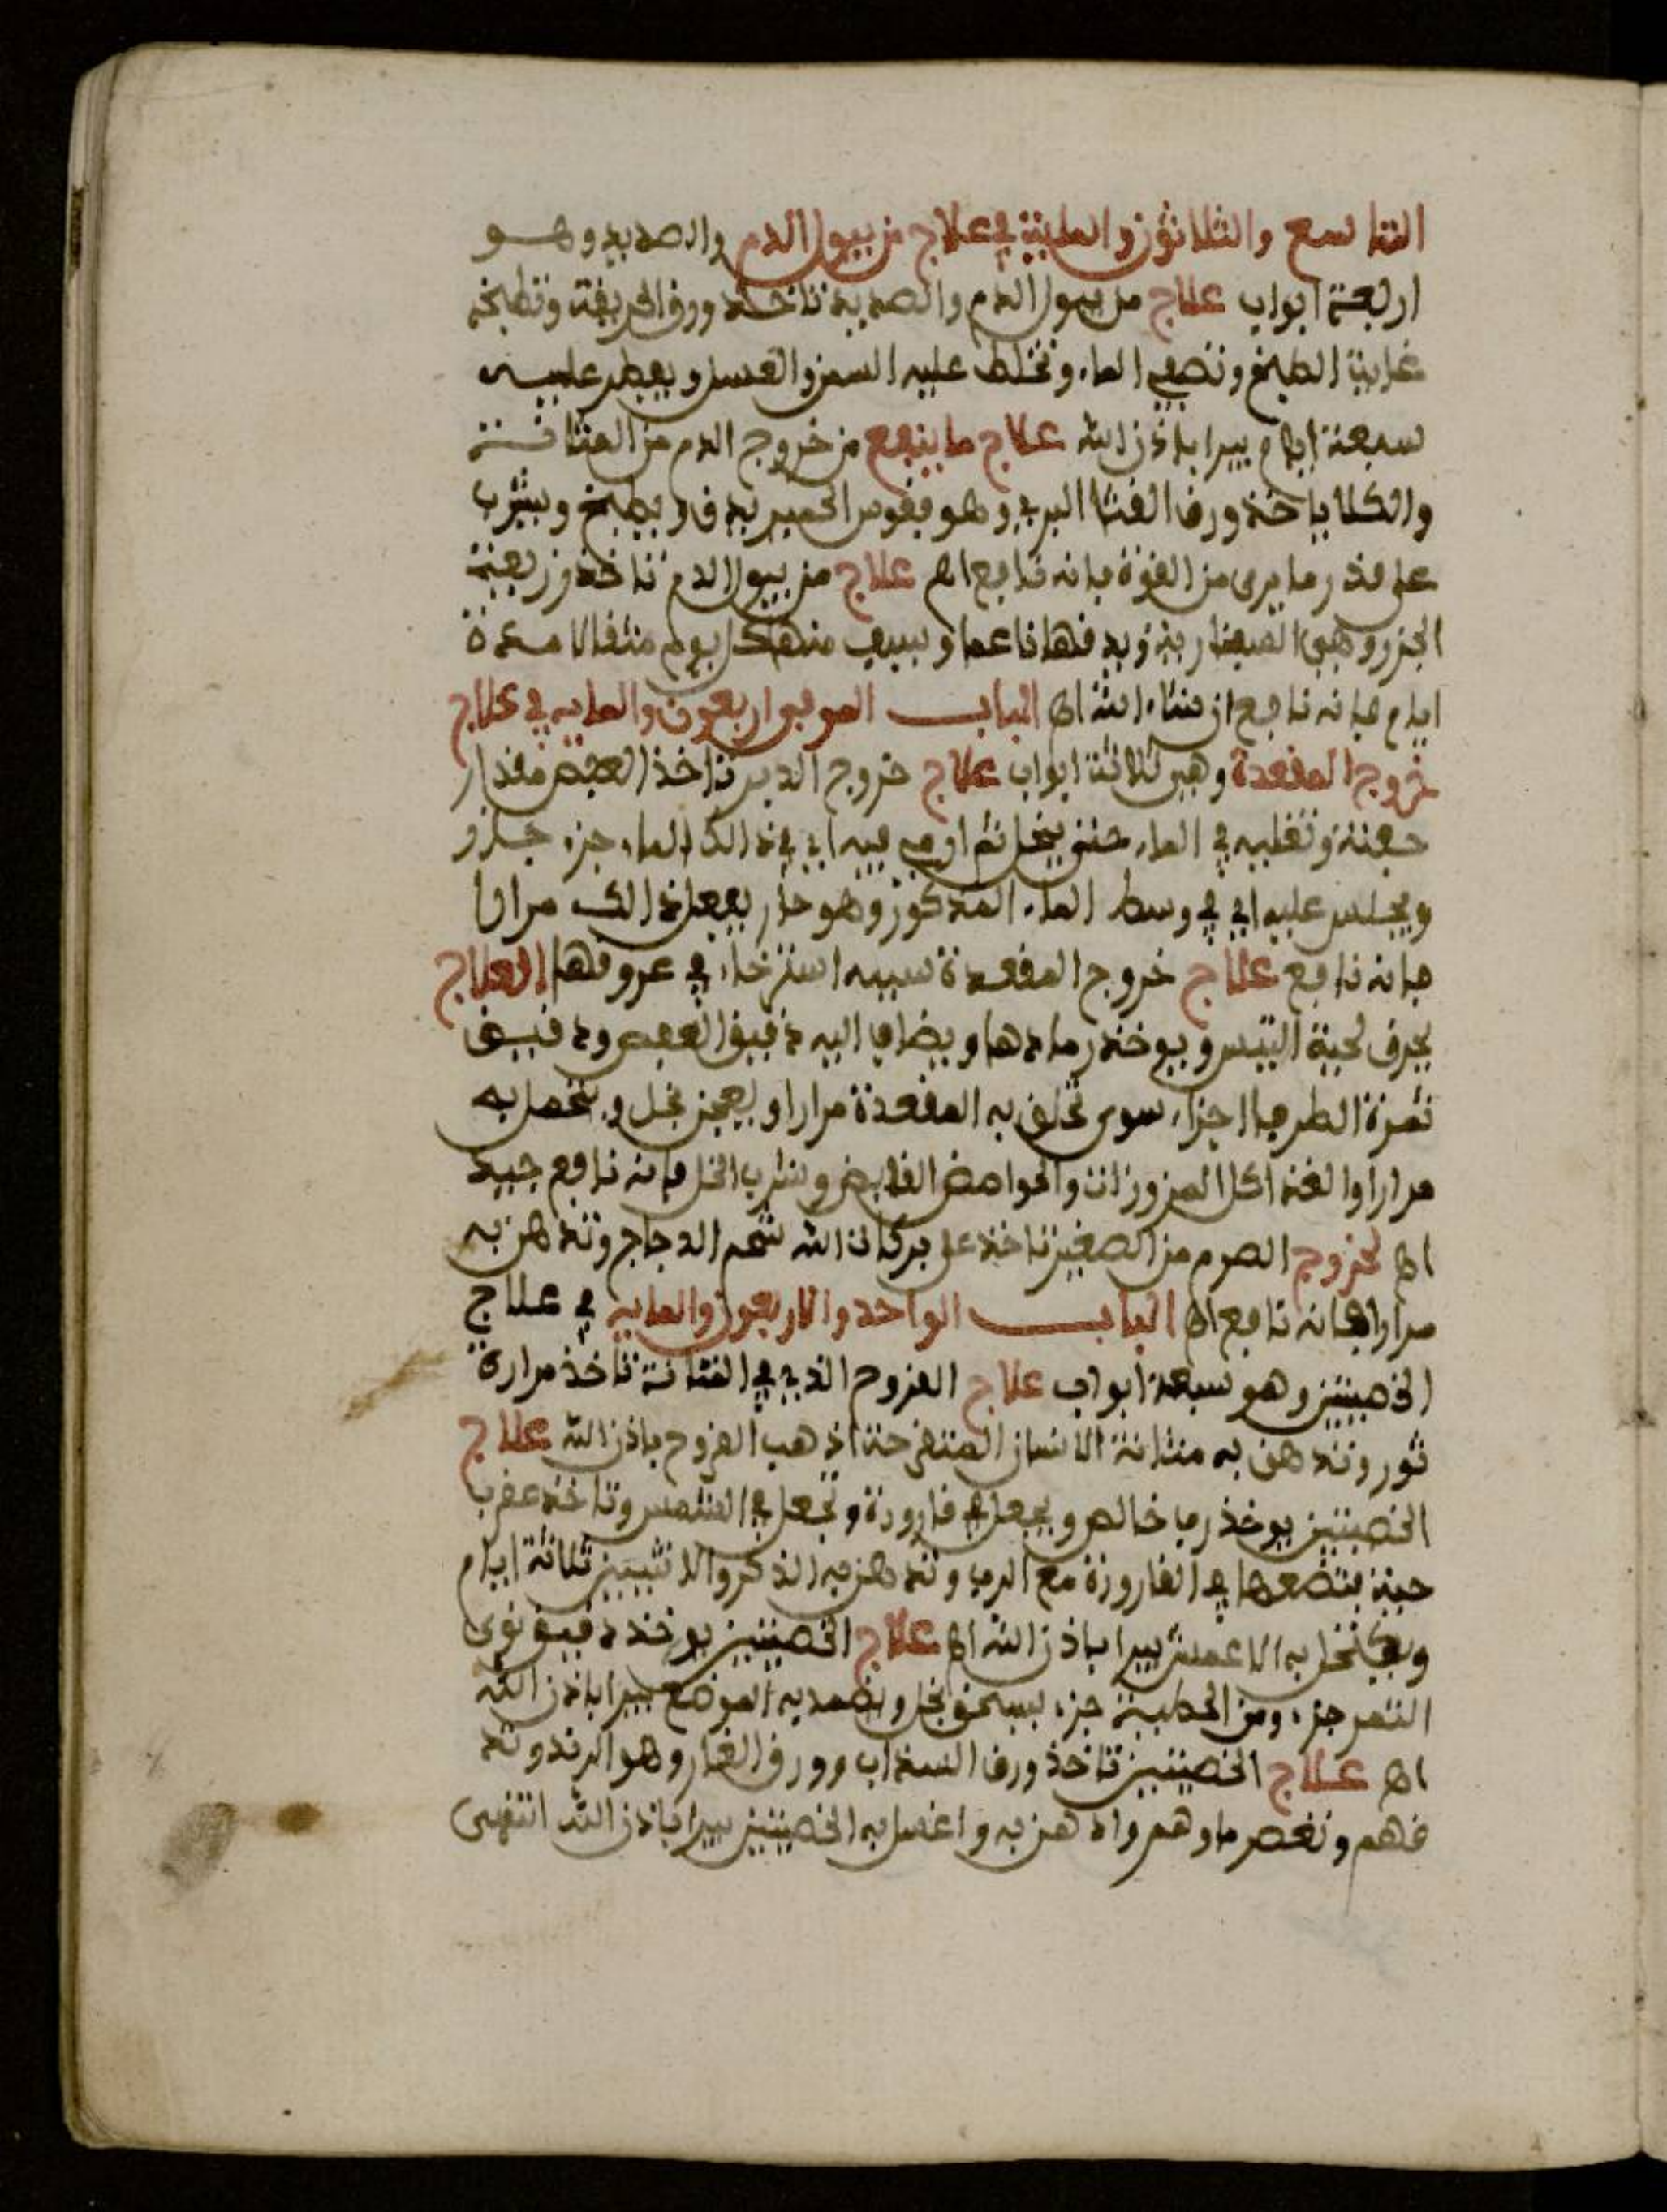 التاسع والثلاثون والماية في علاج من يبول الدم والصديد وهو
اربعة ابواب علاج من يبول الدم والصديد تاخذ ورق الحريقة وتطبخه
غاية الطبخ وتصفي الماء وتخلط عليه السمن والعسل ويفطر عليه
سبعة ايام يبرا باذن الله علاج ما ينفع من خروج الدم من المثانة
والكلا ياخذ ورق القثا البري وهو فقوس الحمير يدق ويطبخ ويشرب
على قدر ما يرى من القوة فانه نافع اه علاج من يبول الدم تاخذ زريعة
الجزر وهي يدقها ناعما ويسف منها كل يوم مثقالا مدة
ايام فانه نافع ان شاء الله اه الباب الموفي اربعون والماية في علاج
خروج المقعدة وهي ثلاثة ابواب علاج خروج الدبر تاخذ العفص مقدار
حفنة وتغليه في الماء حتى ينحل ثم ارمي فيه اي في ذالك الماء جزء
ويجلس عليه اي في وسط الماء المذكور وهو حار يفعل ذالك مرارا
فانه نافع علاج خروج المقعدة سببه استرخاء في عروقها العلاج
يحرق لحية التيس ويوخذ رمادها ويضاف اليه دقيق العفص ودقيق
ثمرة الطرفا اجزاء سوى تخلق به المقعدة مرارا ويعجن بخل ويتحمل به
مرارا والغذ اكل المزورات والحوامض القابض وشرب الخل فانه نافع جيد
اه لخروج الصرم من الصغير تاخذ على بركات الله شحم الدجاج وتدهن به
مرارا فانه نافع اه الباب الواحد والاربعون والماية في علاج
الخصيتين وهو سبعة ابواب علاج القروح الذي في المثانة تاخذ مرارة
ثور وتدهن به مثانة الانسان المتقرحة اذهب القروح باذن الله علاج
الخصيتين يوخذ ربا خالص ويجعل في قارورة وتجعل في الشمس وتاخذ عقرب
حية فتضعها في القارورة مع الرب وتدهن به الذكر والانثيين ثلاثة ايام
ويكتحل به الاعمش يبرا باذن الله اه علاج الخصيتين يوخذ دقيق نوى
التمر جزء ومن الخطمية جزء يسحق بخل ويضمد به الموضع يبرا باذن الله
اه علاج الخصيتين تاخذ ورق السداب وورق الغار وهو الرند وتد
قهم وتعصر ماوهم وادهن به واغسل به الخصيتين يبرا باذن الله انتهى